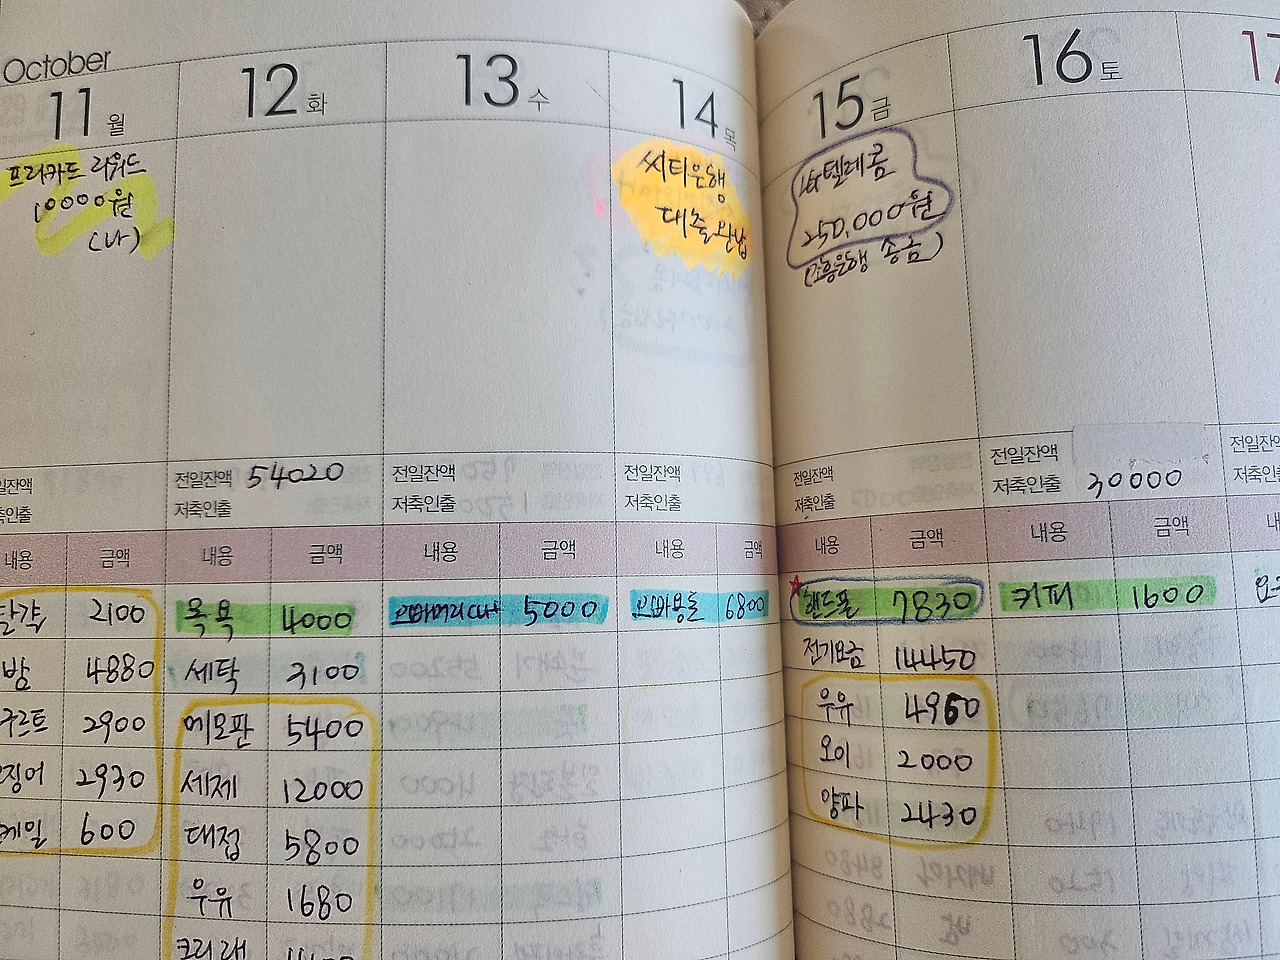 October
11 월
12 화
13 수
14 목
15 금
16 토
17
프리카드 리워드
10000원
(나)
씨티은행
대출완납
텔레콤
250,000원
(조흥은행 송금)
전일잔액 54020
저축인출
전일잔액
저축인출
전일잔액
저축인출
전일잔액
저축인출
전일잔액
저축인출 30000
내용 금액
내용 금액
내용 금액
내용 금액
내용 금액
내용 금액
2100
밤 4880
2900
2930
600
목욕 4000
세탁 3100
메모판 5400
세제 12000
대접 5800
우유 1680
5000
오빠용돈 6800
핸드폰 7830
전기요금 14450
우유 4960
오이 2000
양파 2430
커피 1600